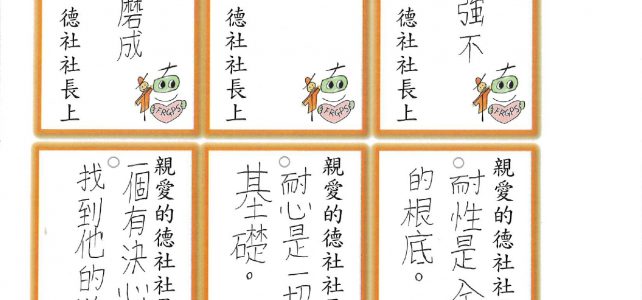 強不
德社社長上
FRGPS
德社社長上
FRGPS
磨成
德社社長上
FRGPS
親愛的德社社
耐性是
的根底。
親愛的德社社
耐心是一切
基礎。
親愛的德社社
一個有決心
找到他的